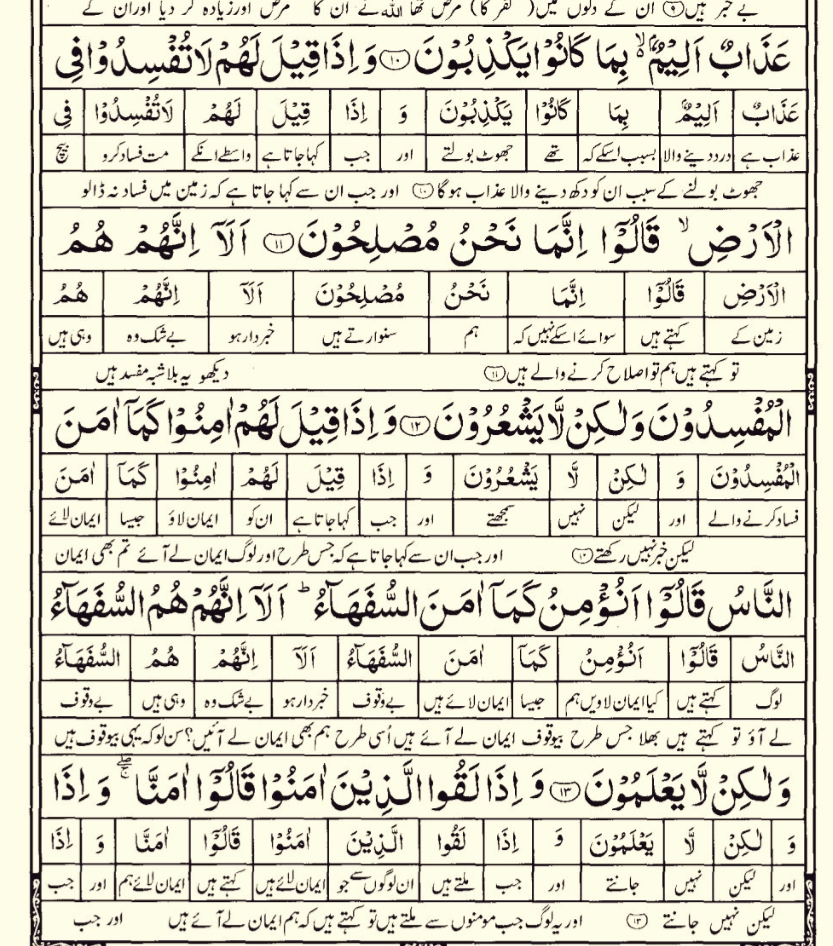 بے خبر ہیں ۹ ان کے دلوں میں (کفر کا) مرض تھا اللہ نے ان کا مرض اور زیادہ کر دیا اور ان کے
عَذَابٌ اَلِیْمٌۢ ۙ۬ بِمَا كَانُوْا یَكْذِبُوْنَ ۝۱۰ وَ اِذَا قِیْلَ لَهُمْ لَا تُفْسِدُوْا فِی
عَذَابٌ اَلِیْمٌۢ بِمَا كَانُوْا یَكْذِبُوْنَ وَ اِذَا قِیْلَ لَهُمْ لَا تُفْسِدُوْا فِی
عذاب ہے درد دینے والا بسبب اسکے کہ تھے جھوٹ بولتے اور جب کہا جاتا ہے واسطے انکے مت فساد کرو بیچ
جھوٹ بولنے کے سبب ان کو دکھ دینے والا عذاب ہو گا ۱۰ اور جب ان سے کہا جاتا ہے کہ زمین میں فساد نہ ڈالو
الْاَرْضِ ۙ قَالُوْۤا اِنَّمَا نَحْنُ مُصْلِحُوْنَ ۝۱۱ اَلَاۤ اِنَّهُمْ هُمُ
الْاَرْضِ قَالُوْۤا اِنَّمَا نَحْنُ مُصْلِحُوْنَ اَلَاۤ اِنَّهُمْ هُمُ
زمین کے کہتے ہیں سوائے اسکے نہیں کہ ہم سنوارتے ہیں خبردار ہو بے شک وہ وہی ہیں
تو کہتے ہیں ہم تو اصلاح کرنے والے ہیں ۱۱ دیکھو یہ بلاشبہ مفسد ہیں
الْمُفْسِدُوْنَ وَ لٰكِنْ لَّا یَشْعُرُوْنَ ۝۱۲ وَ اِذَا قِیْلَ لَهُمْ اٰمِنُوْا كَمَاۤ اٰمَنَ
الْمُفْسِدُوْنَ وَ لٰكِنْ لَّا یَشْعُرُوْنَ وَ اِذَا قِیْلَ لَهُمْ اٰمِنُوْا كَمَاۤ اٰمَنَ
فساد کرنے والے اور لیکن نہیں سمجھتے اور جب کہا جاتا ہے ان کو ایمان لاؤ جیسا ایمان لائے
لیکن خبر نہیں رکھتے ۱۲ اور جب ان سے کہا جاتا ہے کہ جس طرح اور لوگ ایمان لے آئے تم بھی ایمان
النَّاسُ قَالُوْۤا اَنُؤْمِنُ كَمَاۤ اٰمَنَ السُّفَهَآءُ ؕ اَلَاۤ اِنَّهُمْ هُمُ السُّفَهَآءُ
النَّاسُ قَالُوْۤا اَنُؤْمِنُ كَمَاۤ اٰمَنَ السُّفَهَآءُ اَلَاۤ اِنَّهُمْ هُمُ السُّفَهَآءُ
لوگ کہتے ہیں کیا ایمان لاویں ہم جیسا ایمان لائے ہیں بے وقوف خبردار ہو بے شک وہ وہی ہیں بے وقوف
لے آؤ تو کہتے ہیں بھلا جس طرح بیوقوف ایمان لے آئے ہیں اُسی طرح ہم بھی ایمان لے آئیں؟ سن لو کہ یہی بیوقوف ہیں
وَ لٰكِنْ لَّا یَعْلَمُوْنَ ۝۱۳ وَ اِذَا لَقُوا الَّذِیْنَ اٰمَنُوْا قَالُوْۤا اٰمَنَّا ۖۚ وَ اِذَا
وَ لٰكِنْ لَّا یَعْلَمُوْنَ وَ اِذَا لَقُوا الَّذِیْنَ اٰمَنُوْا قَالُوْۤا اٰمَنَّا وَ اِذَا
اور لیکن نہیں جانتے اور جب ملتے ہیں ان لوگوں سے جو ایمان لائے ہیں کہتے ہیں ایمان لائے ہم اور جب
لیکن نہیں جانتے ۱۳ اور یہ لوگ جب مومنوں سے ملتے ہیں تو کہتے ہیں کہ ہم ایمان لے آئے ہیں اور جب